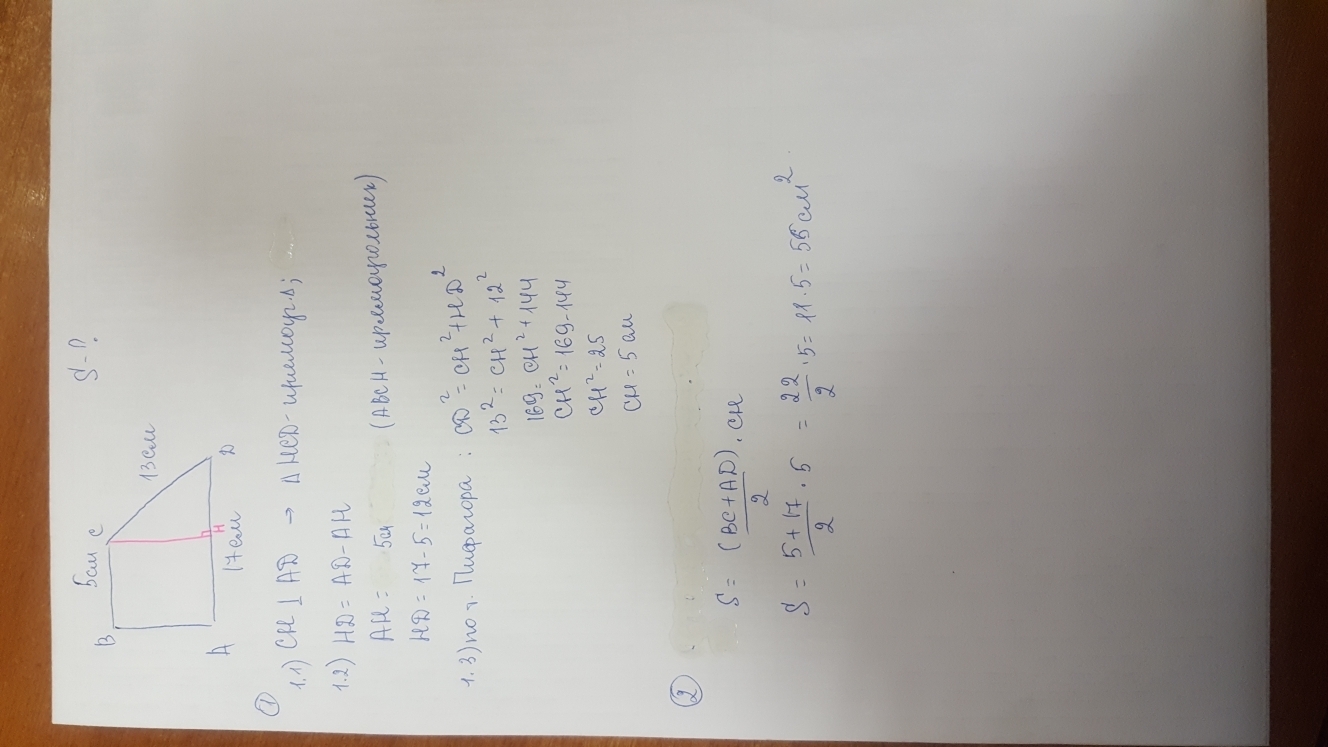 S-?
5см
B
C
13см
A
H
D
17см
①
1.1) CH ⊥ AD → Δ HCD - прямоуг. Δ;
1.2) HD = AD - AH
AH = 5см (ABCH - прямоугольник)
HD = 17-5 = 12см
1.3) по т. Пифагора : CD² = CH² + HD²
13² = CH² + 12²
169 = CH² + 144
CH² = 169-144
CH² = 25
CH = 5 см
②
S = (BC + AD)/2 · CH
S = 5+17/2 · 5 = 22/2 · 5 = 11 · 5 = 55 см²